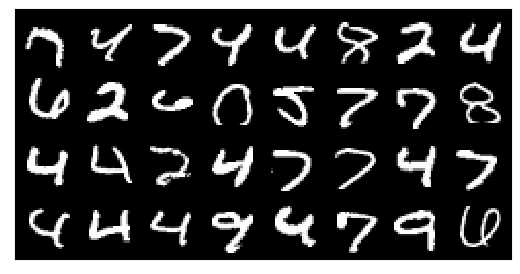 7 4 7 4 4 8 2 4
6 2 6 0 5 7 7 8
4 4 2 4 7 7 4 7
4 4 4 9 4 7 9 6